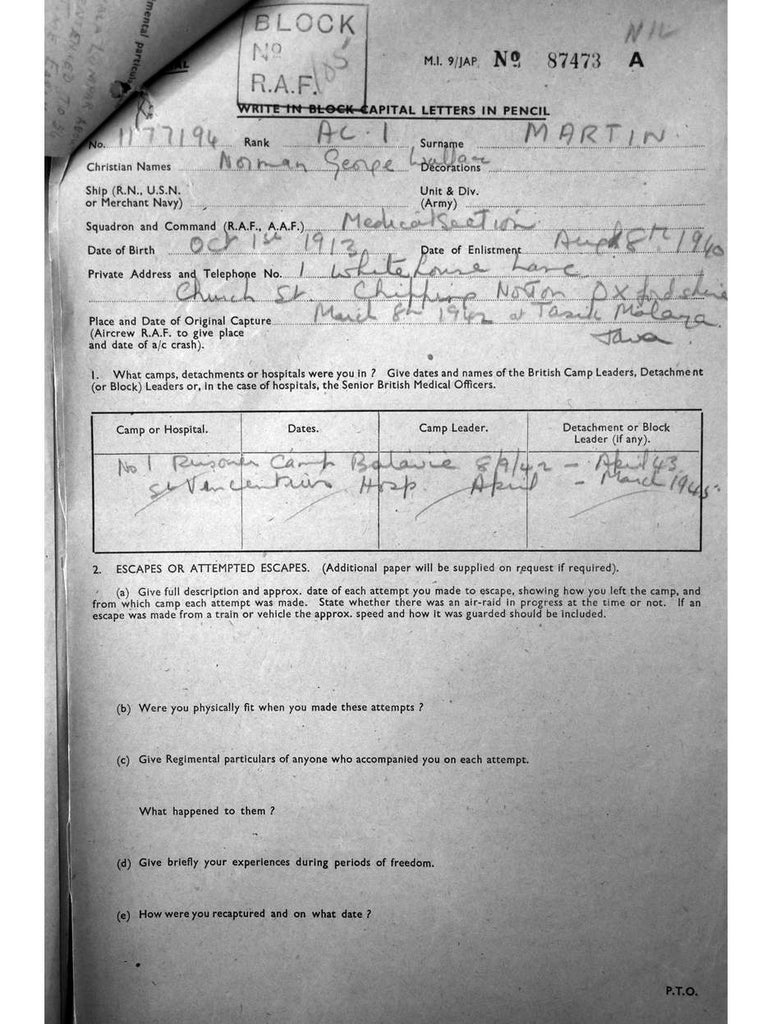 mental particulars
BLOCK
Nº
R.A.F. 185
NIL
M.I. 9/JAP Nº 87473 A
WRITE IN BLOCK CAPITAL LETTERS IN PENCIL
No. 1177194 Rank AC.1 Surname MARTIN
Christian Names Norman George Wallace Decorations
Ship (R.N., U.S.N. or Merchant Navy) Unit & Div. (Army)
Squadron and Command (R.A.F., A.A.F.) Medical Section
Date of Birth Oct 1st 1913 Date of Enlistment Aug 8th 1940
Private Address and Telephone No. 1 Whitehouse Lane
Church St. Chipping Norton Oxfordshire
Place and Date of Original Capture March 8th 1942 at Tasik Malaya
(Aircrew R.A.F. to give place Java.
and date of a/c crash).
1. What camps, detachments or hospitals were you in ? Give dates and names of the British Camp Leaders, Detachment
(or Block) Leaders or, in the case of hospitals, the Senior British Medical Officers.
Camp or Hospital. Dates. Camp Leader. Detachment or Block
Leader (if any).
No 1 Prisoner Camp Batavia 8/9/42 – April 43
St Vencentius Hosp April – March 1945.
2. ESCAPES OR ATTEMPTED ESCAPES. (Additional paper will be supplied on request if required).
(a) Give full description and approx. date of each attempt you made to escape, showing how you left the camp, and
from which camp each attempt was made. State whether there was an air-raid in progress at the time or not. If an
escape was made from a train or vehicle the approx. speed and how it was guarded should be included.
(b) Were you physically fit when you made these attempts ?
(c) Give Regimental particulars of anyone who accompanied you on each attempt.
What happened to them ?
(d) Give briefly your experiences during periods of freedom.
(e) How were you recaptured and on what date ?
P.T.O.